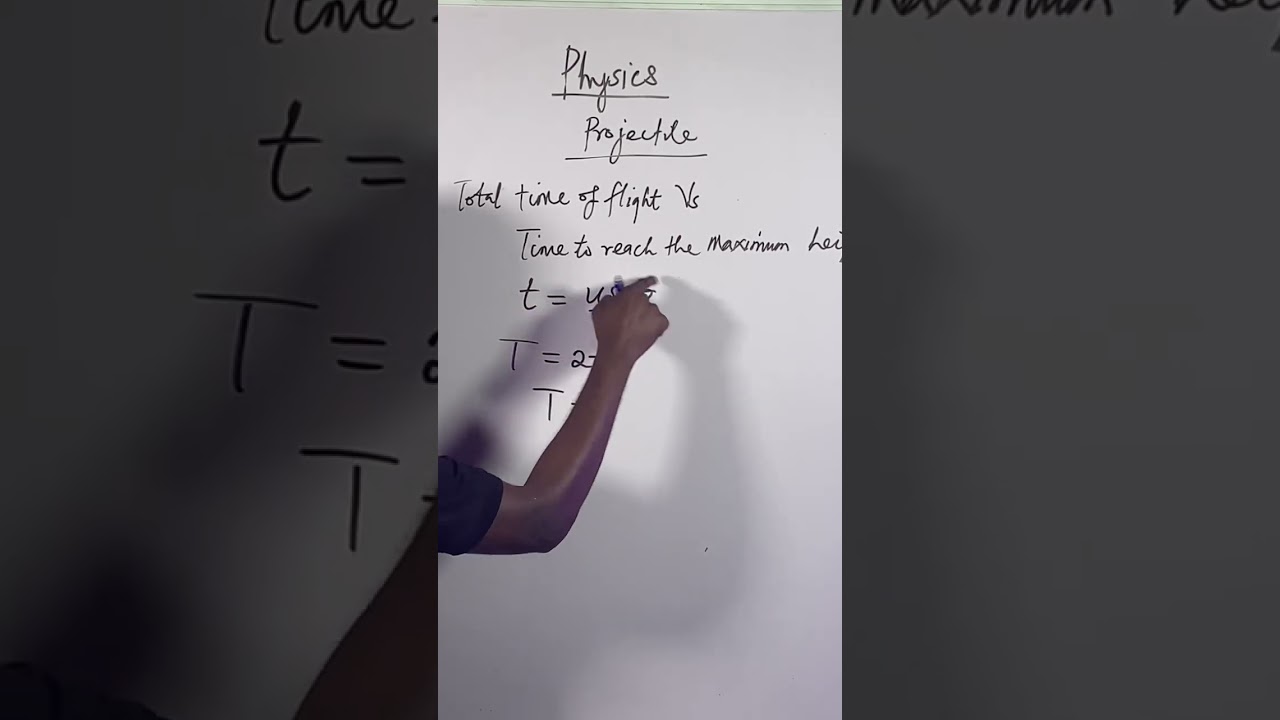 Physics
Projectile
Total time of flight Vs
Time to reach the maximum hei
t = u
T = 2t
T